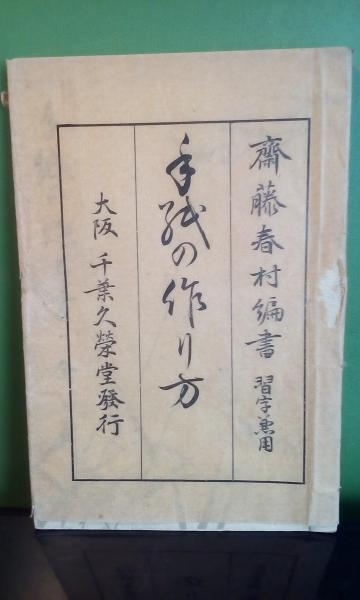 齋藤春村編書 習字兼用
手紙の作り方
大阪 千葉久榮堂發行